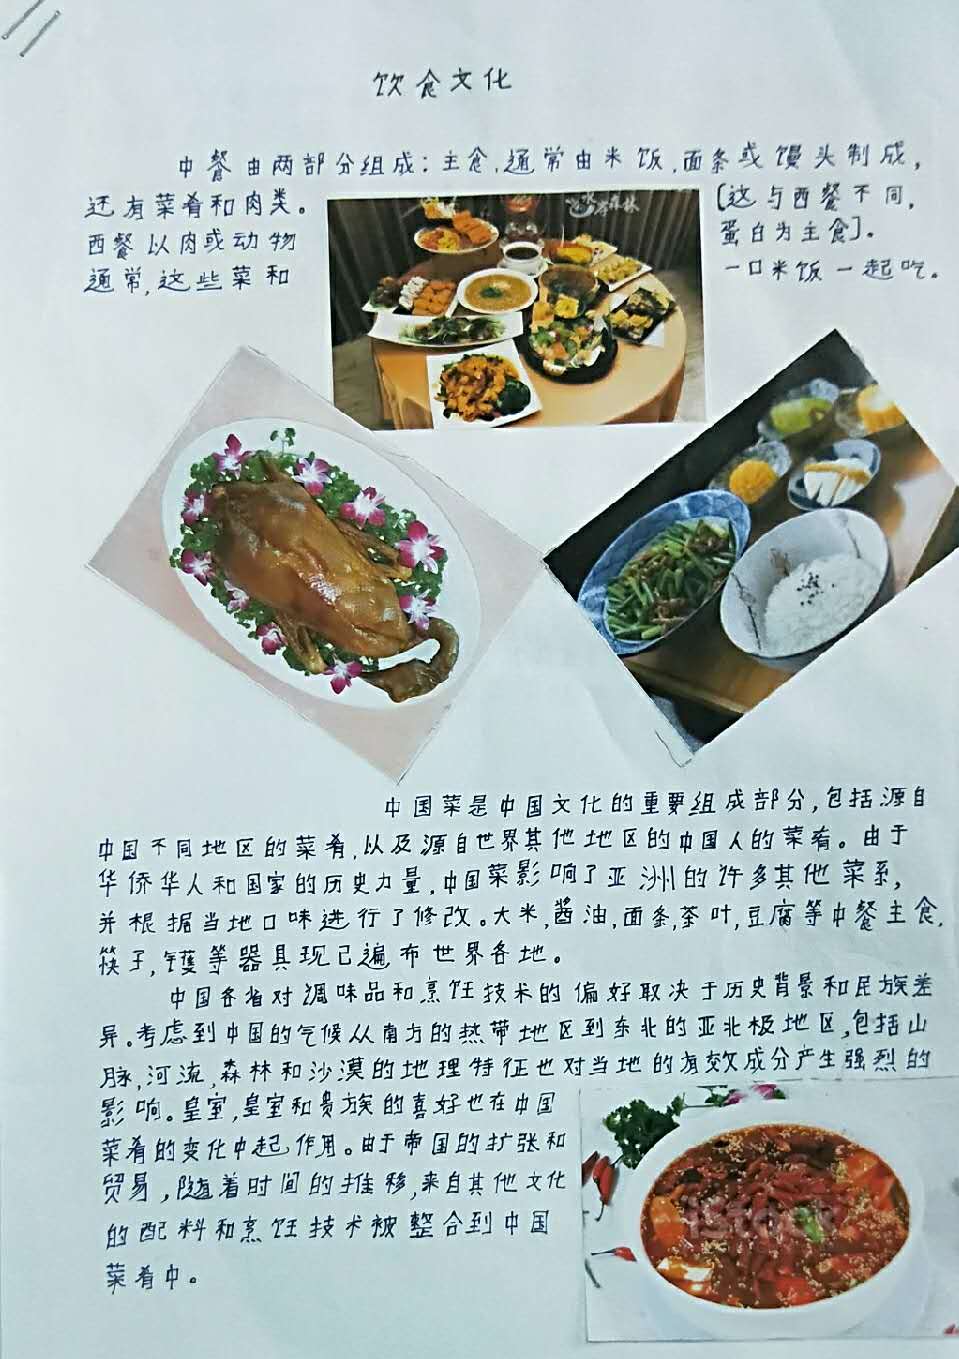 饮食文化
中餐由两部分组成：主食，通常由米饭，面条或馒头制成，
还有菜肴和肉类。 [这与西餐不同，
西餐以肉或动物 蛋白为主食]。
通常，这些菜和 一口米饭一起吃。
中国菜是中国文化的重要组成部分，包括源自
中国不同地区的菜肴，以及源自世界其他地区的中国人的菜肴。由于
华侨华人和国家的历史力量，中国菜影响了亚洲的许多其他菜系，
并根据当地口味进行了修改。大米，酱油，面条，茶叶，豆腐等中餐主食，
筷子，镬等器具现已遍布世界各地。
中国各省对调味品和烹饪技术的偏好取决于历史背景和民族差
异。考虑到中国的气候从南方的热带地区到东北的亚北极地区，包括山
脉，河流，森林和沙漠的地理特征也对当地的有效成分产生强烈的
影响。皇室，皇室和贵族的喜好也在中国
菜肴的变化中起作用。由于帝国的扩张和
贸易，随着时间的推移，来自其他文化
的配料和烹饪技术被整合到中国
菜肴中。
iStock